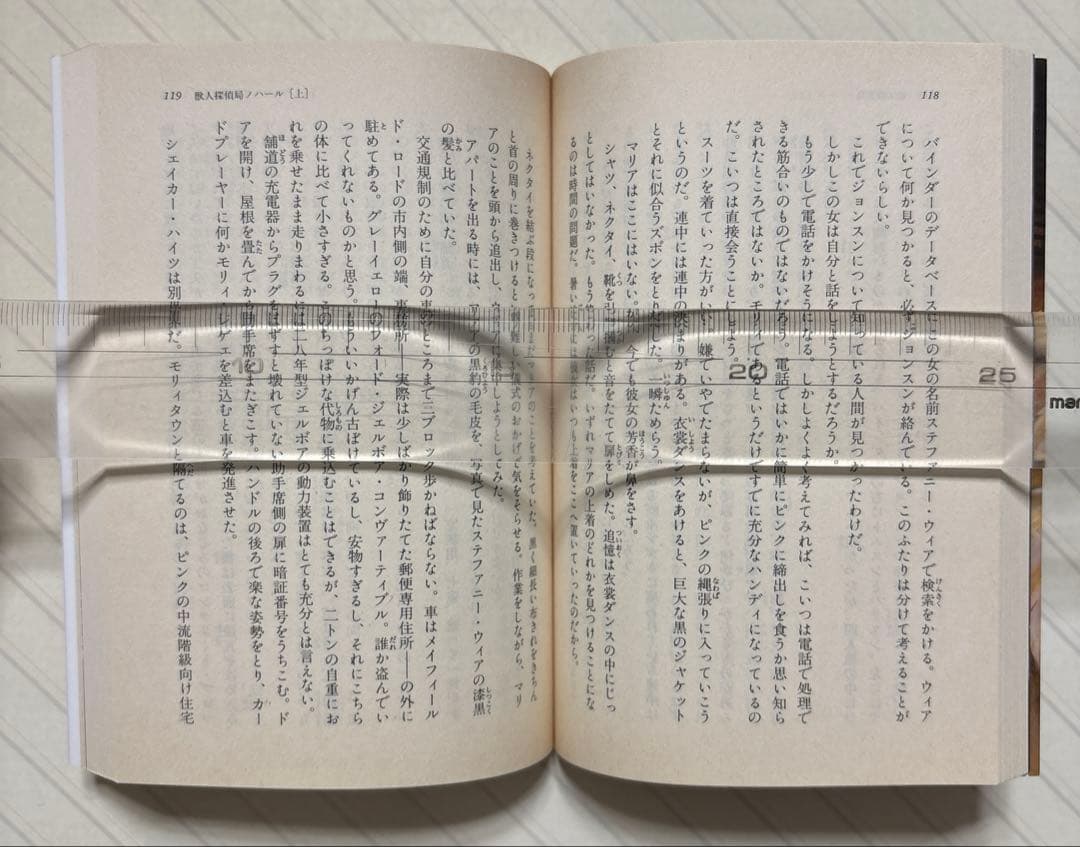 118
バインダーのデータベースにこの女の名前ステファニー・ウィアで検索をかける。ウィア
について何か見つかると、必ずジョンスンが絡んでいる。このふたりは分けて考えることが
できないらしい。
これでジョンスンについて知っている人間が見つかったわけだ。
しかしこの女は自分と話をしようとするだろうか。
もう少しで電話をかけそうになる。しかしよくよく考えてみれば、こいつは電話で処理で
きる筋合いのものではないだろう。電話ではいかに簡単にピンクに締出しを食うか思い知ら
されたところではないか。モリィであるというだけですでに充分なハンディになっているの
だ。こいつは直接会うことにしよう。
スーツを着ていった方がいい。嫌でいやでたまらないが、ピンクの縄張りに入っていこう
というのだ。連中には連中の決まりがある。衣裳ダンスをあけると、巨大な黒のジャケット
とそれに似合うズボンをとりだした。一瞬ためらう。
マリアはここにはいない。が、今でも彼女の芳香が鼻をさす。
シャツ、ネクタイ、靴を引っ掴むと音をたてて扉をしめた。追憶は衣裳ダンスの中にじっ
としてはいなかった。もう終わった話だ。いずれマリアの上着のどれかを見つけることにな
るのは時間の問題だ。暑い
はいつも上着をここへ置いていったのだから。
119 獣人探偵局ノハール［上］
ネクタイを結ぶ段になっ
マリアのことを考えていた。黒く細長い布きれをきちん
と首の周りに巻きつけると
儀式のおかげで気をそらせる。作業をしながら、マリ
アのことを頭から追出し、ウィアに集中しようとしてみた。
アパートを出る時には、マリアの黒豹の毛皮を、写真で見たステファニー・ウィアの漆黒
の髪と比べていた。
交通規制のために自分の車のところまで三ブロック歩かねばならない。車はメイフィール
ド・ロードの市内側の端、事務所――実際は少しばかり飾りたてた郵便専用住所――の外に
駐めてある。グレーイエローのフォード・ジェルボア・コンヴァーティブル。誰か盗んでい
ってくれないものかと思う。もういいかげん古ぼけているし、安物すぎるし、それにこちら
の体に比べて小さすぎる。このちっぽけな代物に乗込むことはできるが、二トンの自重にお
れを乗せたまま走りまわるには二八年型ジェルボアの動力装置はとても充分とは言えない。
舗道の充電器からプラグをはずすと壊れていない助手席側の扉に暗証番号をうちこむ。ド
アを開け、屋根を畳んでから助手席をまたぎこす。ハンドルの後ろで楽な姿勢をとり、カー
ドプレーヤーに何かモリィ・レゲエを差込むと車を発進させた。
シェイカー・ハイツは別世界だ。モリィタウンと隔てるのは、ピンクの中流階級向け住宅
10
20
25
mar